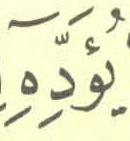 يُؤَدِّهِٓ